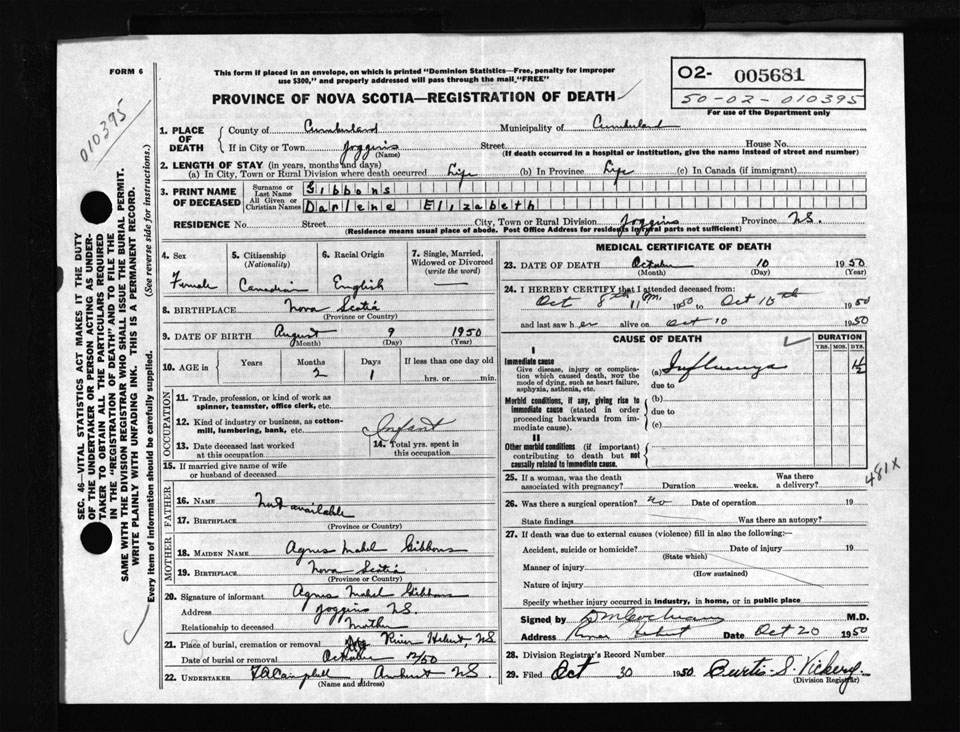 FORM 6
This form if placed in an envelope, on which is printed "Dominion Statistics—Free, penalty for improper
use $300," and properly addressed will pass through the mail "FREE"
O2- 005681
50-02-010395
For use of the Department only
PROVINCE OF NOVA SCOTIA—REGISTRATION OF DEATH
010395
SEC. 46—VITAL STATISTICS ACT MAKES IT THE DUTY
OF THE UNDERTAKER OR PERSON ACTING AS UNDER-
TAKER TO OBTAIN ALL THE PARTICULARS REQUIRED
IN THE "REGISTRATION OF DEATH" AND TO FILE THE
SAME WITH THE DIVISION REGISTRAR WHO SHALL ISSUE THE BURIAL PERMIT.
WRITE PLAINLY WITH UNFADING INK. THIS IS A PERMANENT RECORD.
Every item of information should be carefully supplied. (See reverse side for instructions.)
1. PLACE OF DEATH
County of Cumberland Municipality of Cumberland
If in City or Town Joggins Street House No.
(Name) (If death occurred in a hospital or institution, give the name instead of street and number)
2. LENGTH OF STAY (in years, months and days)
(a) In City, Town or Rural Division where death occurred Life (b) In Province Life (c) In Canada (if immigrant)
3. PRINT NAME OF DECEASED
Surname or Last Name Gibbons
All Given or Christian Names Darlene Elizabeth
RESIDENCE No. Street City, Town or Rural Division Joggins Province N.S.
(Residence means usual place of abode. Post Office Address for residents in rural parts not sufficient)
4. Sex Female
5. Citizenship (Nationality) Canadian
6. Racial Origin English
7. Single, Married, Widowed or Divorced (write the word)
8. BIRTHPLACE Nova Scotia
(Province or Country)
9. DATE OF BIRTH August 9 1950
(Month) (Day) (Year)
10. AGE in Years Months 2 Days 1 If less than one day old hrs. or min.
OCCUPATION
11. Trade, profession, or kind of work as
spinner, teamster, office clerk, etc.
12. Kind of industry or business, as cotton-
mill, lumbering, bank, etc. Infant
13. Date deceased last worked
at this occupation
14. Total yrs. spent in
this occupation
15. If married give name of wife
or husband of deceased
FATHER
16. NAME Not available
17. BIRTHPLACE
(Province or Country)
MOTHER
18. MAIDEN NAME Agnes Mabel Gibbons
19. BIRTHPLACE Nova Scotia
(Province or Country)
20. Signature of informant Agnes Mabel Gibbons
Address Joggins N.S.
Relationship to deceased Mother
21. Place of burial, cremation or removal River Hebert, N.S
Date of burial or removal October 12/50
22. UNDERTAKER Campbell Amherst N.S.
(Name and address)
MEDICAL CERTIFICATE OF DEATH
23. DATE OF DEATH October 10 1950
(Month) (Day) (Year)
24. I HEREBY CERTIFY that I attended deceased from:
Oct 8th 1950 to Oct 10th 1950
and last saw h er alive on Oct 10 1950
CAUSE OF DEATH DURATION
YRS. MOS. DYS.
I
Immediate cause
Give disease, injury or complica-
tion which caused death, NOT the
mode of dying, such as heart failure,
asphyxia, asthenia, etc.
(a) Influenza 1½
due to
Morbid conditions, if any, giving rise to
immediate cause (stated in order
proceeding backwards from im-
mediate cause).
(b)
due to
(c)
II
Other morbid conditions (if important)
contributing to death but not
causally related to immediate cause.
481X
25. If a woman, was the death
associated with pregnancy? Duration weeks. Was there a delivery?
26. Was there a surgical operation? no Date of operation 19
State findings Was there an autopsy?
27. If death was due to external causes (violence) fill in also the following:—
Accident, suicide or homicide? Date of injury 19
(State which)
Manner of injury
(How sustained)
Nature of injury
Specify whether injury occurred in industry, in home, or in public place
Signed by M.D.
Address River Hebert Date Oct 20 1950
28. Division Registrar's Record Number
29. Filed Oct 30 1950 Burtis S. Vickery
(Division Registrar)